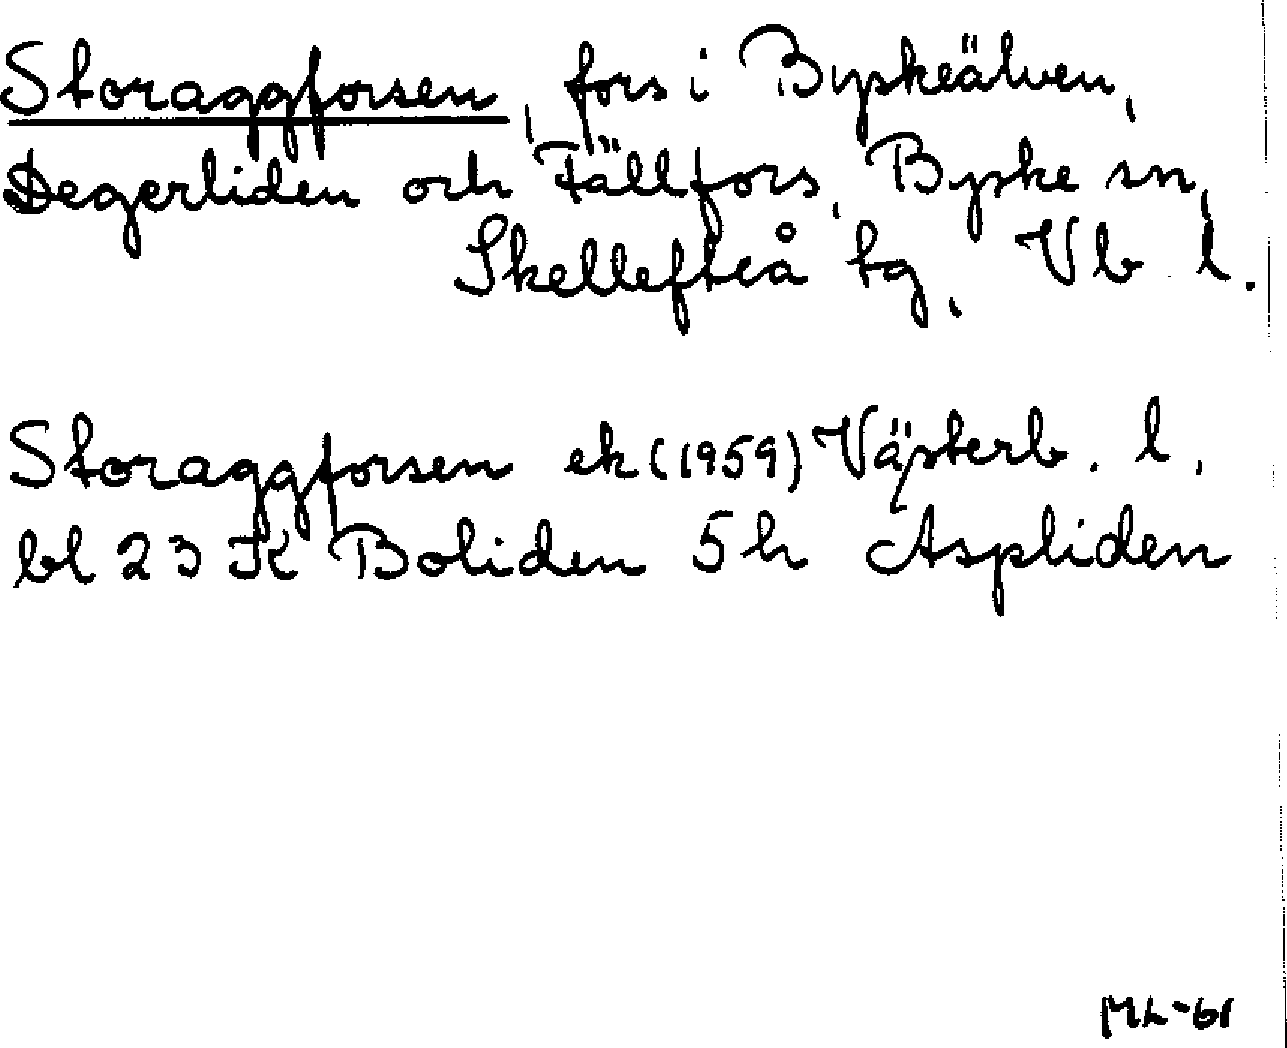 Storaggforsen, fors i Byskeälven,
Degerliden och Fällfors, Byske sn,
Skellefteå tg, Vb l.
Storaggforsen ek (1959) Västerb. l,
bl 23 K Boliden 5h Aspliden
ML-61